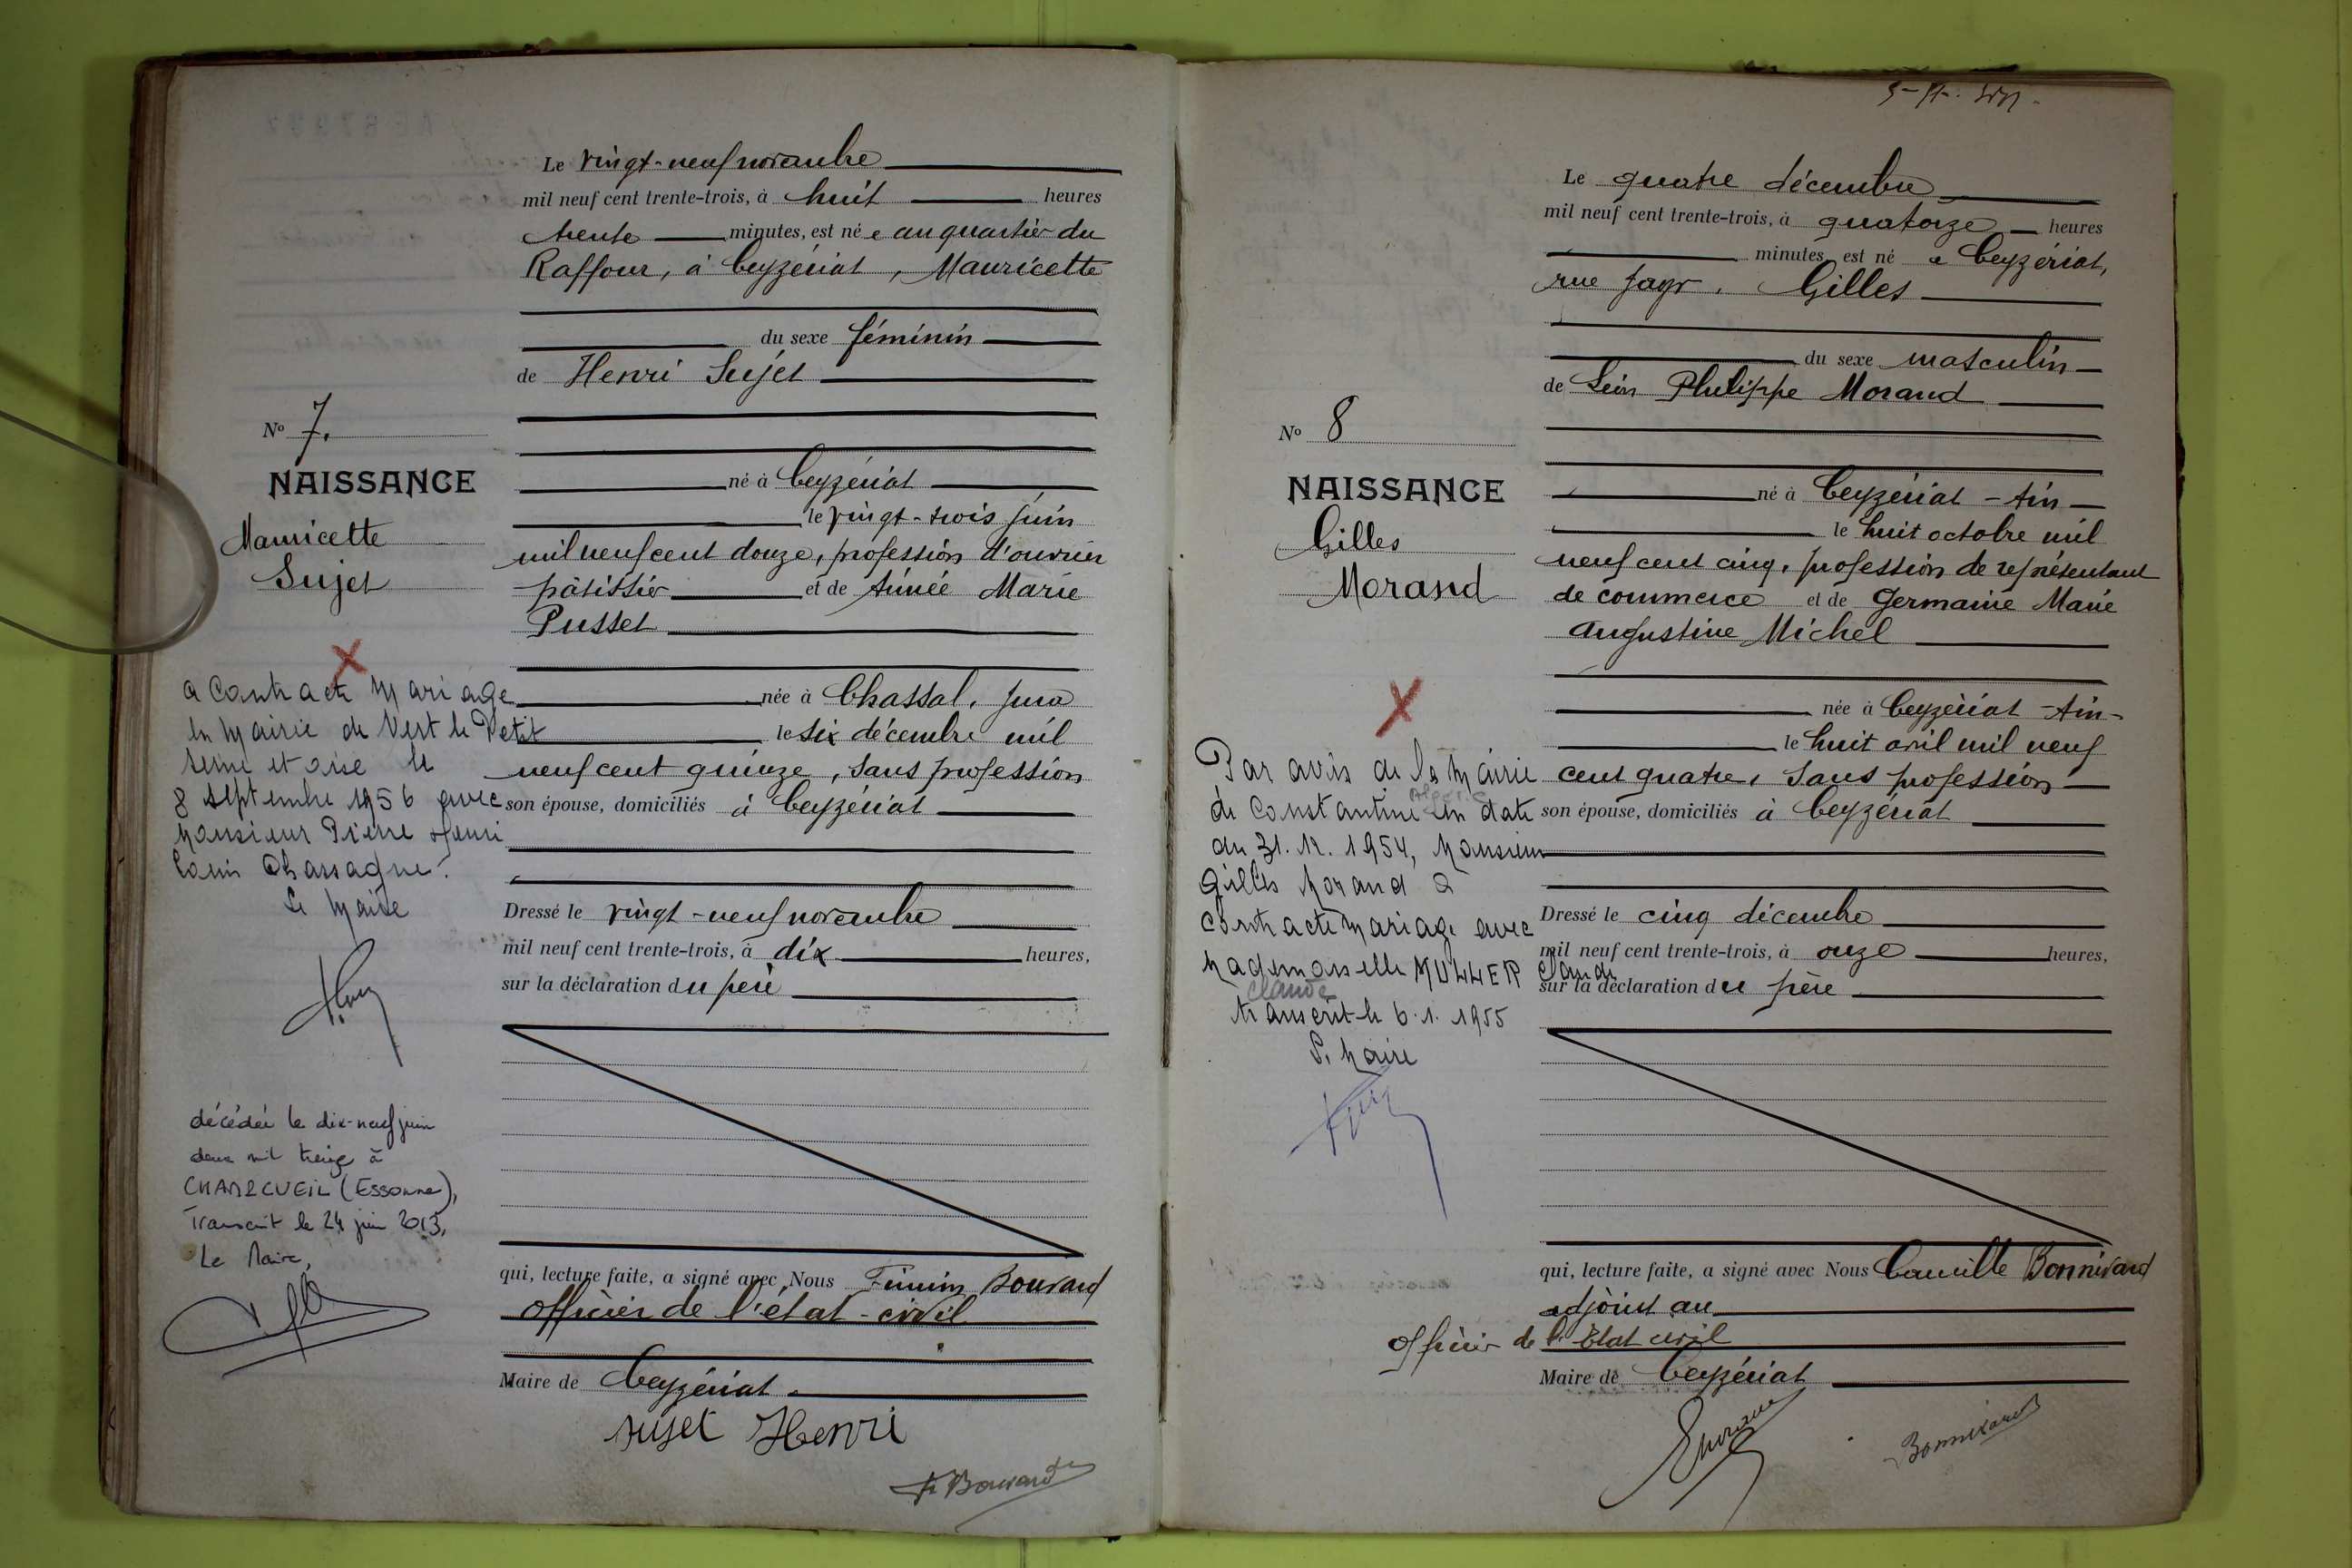 Le vingt-neuf novembre
mil neuf cent trente-trois, à huit heures
trente minutes, est né e au quartier du
Raffour, à Ceyzériat, Mauricette
du sexe féminin
de Henri Sujet
né à Ceyzériat
le vingt-trois juin
mil neuf cent douze, profession d'ouvrier
pâtissier et de Aimée Marie
Pusset
née à Chassal, Jura
le six décembre mil
neuf cent quinze, sans profession
son épouse, domiciliés à Ceyzériat
Dressé le vingt-neuf novembre
mil neuf cent trente-trois, à dix heures,
sur la déclaration du père
qui, lecture faite, a signé avec Nous Firmin Bouvard
officier de l'état-civil
Maire de Ceyzériat.
Sujet Henri
F. Bouvard
No 7.
NAISSANCE
Mauricette
Sujet
a contracté mariage
en mairie de Vert le Petit
Seine et oise le
8 septembre 1956 avec
Monsieur Pierre Henri
Louis Chassagne.
Le Maire
décédée le dix-neuf juin
deux mil treize à
CHAMPCUEIL (Essonne),
Transcrit le 24 juin 2013,
Le Maire,
Le quatre décembre
mil neuf cent trente-trois, à quatorze heures
minutes, est né à Ceyzériat,
rue Jayr, Gilles
du sexe masculin
de Léon Philippe Morand
né à Ceyzériat - Ain
le huit octobre mil
neuf cent cinq, profession de représentant
de commerce et de Germaine Marie
Augustine Michel
née à Ceyzériat - Ain -
le huit avril mil neuf
cent quatre, sans profession
son épouse, domiciliés à Ceyzériat
Dressé le cinq décembre
mil neuf cent trente-trois, à onze heures,
sur la déclaration du père
qui, lecture faite, a signé avec Nous Camille Bonnivard
adjoint au
officier de l'Etat civil
Maire de Ceyzériat
Bonnivard
No 8
NAISSANCE
Gilles
Morand
Par avis de la Mairie
de Constantine Algérie en date
du 31. 12. 1954, Monsieur
Gilles Morand a
contracté mariage avec
Mademoiselle MULLER Claude
Claude
transcrit le 6. 1. 1955
Le Maire